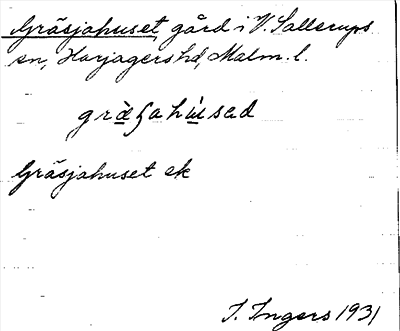 Gräsjahuset, gård i V. Sallerups
sn, Harjagers hd, Malm. l.
grä̀ʂahùsad
Gräsjahuset ek
I. Ingers 1931